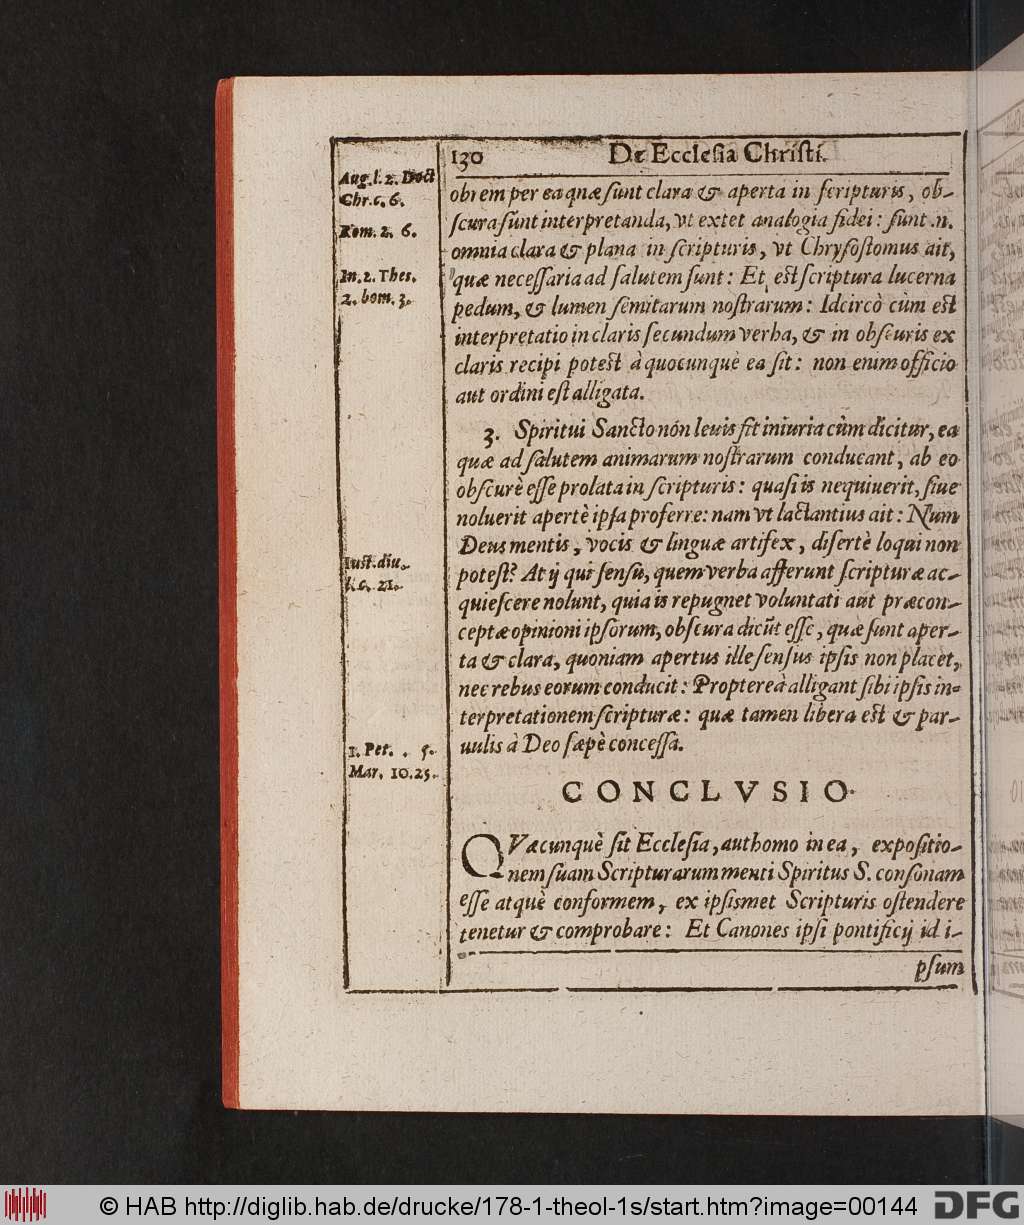 130 De Ecclesia Christi.
Aug. l. 2. Doct
Chr. c. 6.
Rom. 2. 6.
In. 2. Thes.
2. hom. 3.
Iust. diu.
l. c. 21.
1. Pet. . 5.
Mar. 10. 25.
ob rem per ea quæ ſunt clara & aperta in ſcripturis, ob-
ſcura ſunt interpretanda, vt extet analogia fidei: ſunt .n.
omnia clara & plana in ſcripturis, vt Chryſoſtomus ait,
quæ neceſſaria ad ſalutem ſunt: Et eſt ſcriptura lucerna
pedum, & lumen ſemitarum noſtrarum: Idcircò cùm eſt
interpretatio in claris ſecundum verba, & in obſcuris ex
claris recipi poteſt à quocunquè ea ſit: non enim officio
aut ordini eſt alligata.
3. Spiritui Sancto nón leuis fit iniuria cùm dicitur, ea
quæ ad ſalutem animarum noſtrarum conducant, ab eo
obſcurè eſſe prolata in ſcripturis: quaſi is nequiuerit, ſiue
noluerit apertè ipſa proferre: nam vt lactantius ait: Num
Deus mentis, vocis & linguæ artifex, diſertè loqui non
poteſt? At ij qui ſenſū, quem verba afferunt ſcripturæ ac-
quieſcere nolunt, quia is repugnet voluntati aut præcon-
ceptæ opinioni ipſorum, obſcura dicūt eſſe, quæ ſunt aper-
ta & clara, quoniam apertus ille ſenſus ipſis non placet,
nec rebus eorum conducit: Proptereà alligant ſibi ipſis in-
terpretationem ſcripturæ: quæ tamen libera eſt & par-
uulis à Deo ſæpè conceſſa.
CONCLVSIO.
QVæcunquè ſit Eccleſia, aut homo in ea, expoſitio-
nem ſuam Scripturarum menti Spiritus S. conſonam
eſſe atquè conformem, ex ipſismet Scripturis oſtendere
tenetur & comprobare: Et Canones ipſi pontificij id i-
pſum
© HAB http://diglib.hab.de/drucke/178-1-theol-1s/start.htm?image=00144 DFG